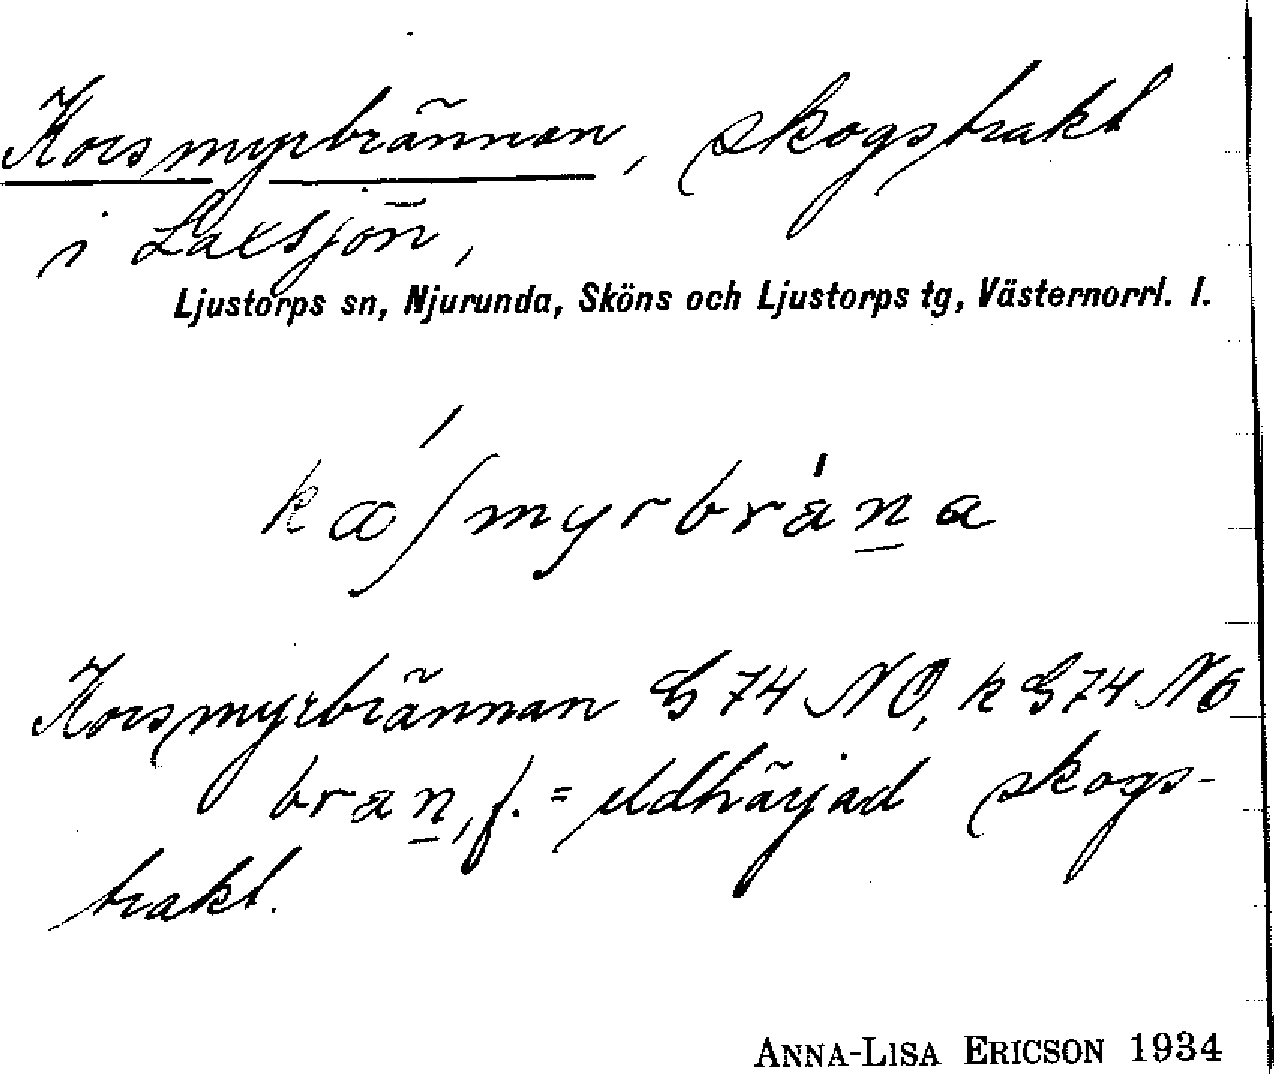 Korsmyrbrännan, skogstrakt
i Laxsjön,
Ljustorps sn, Njurunda, Sköns och Ljustorps tg, Västernorrl. l.
Korsmyrbrännan G 74 NO, k G 74 NO
bran, f. = eldhärjad skogs-
trakt.
ANNA-LISA ERICSON 1934